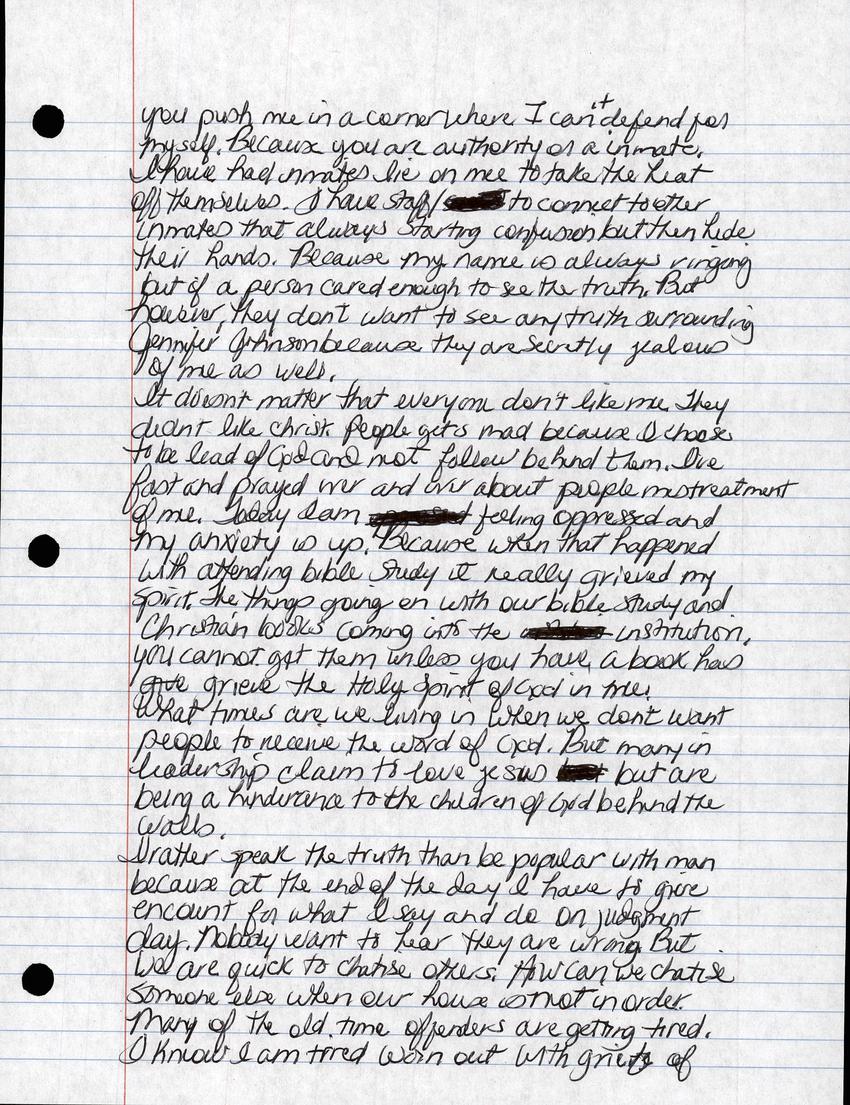 you push me in a corner where I can't defend for
myself. Because you are authority or a inmate.
I have had inmates lie on me to take the heat
off themselves. I have staff/ to connect to other
inmates that always starting confusion but then hide
their hands. Because my name is always ringing
but if a person cared enough to see the truth. But
however, they don't want to see any truth surrounding
Jennifer Johnson because they are secretly jealous
of me as well.
It doesnt matter that everyone don't like me. They
didnt like christ. People gets mad because I choose
to be lead of God and not follow behind them. I've
fast and prayed over and over about people mistreatment
of me. Today I am feeling oppressed and
my anxiety is up. Because when that happened
with attending bible study it really grieved my
spirit. The things going on with our bible study and
Christian books coming into the institution.
you cannot get them unless you have a book has
grieve the Holy Spirit of God in me.
What times are we living in when we don't want
people to receive the word of God. But many in
leadership claim to love jesus but are
being a hinderance to the children of God behind the
walls.
I ratter speak the truth than be popular with man
because at the end of the day I have to give
encount for what I say and do on judgment
day. Nobody want to hear they are wrong But
we are quick to chatise others. How can we chatise
someone else when our house is not in order.
Many of the old time offenders are getting tired.
I know I am tired worn out with of